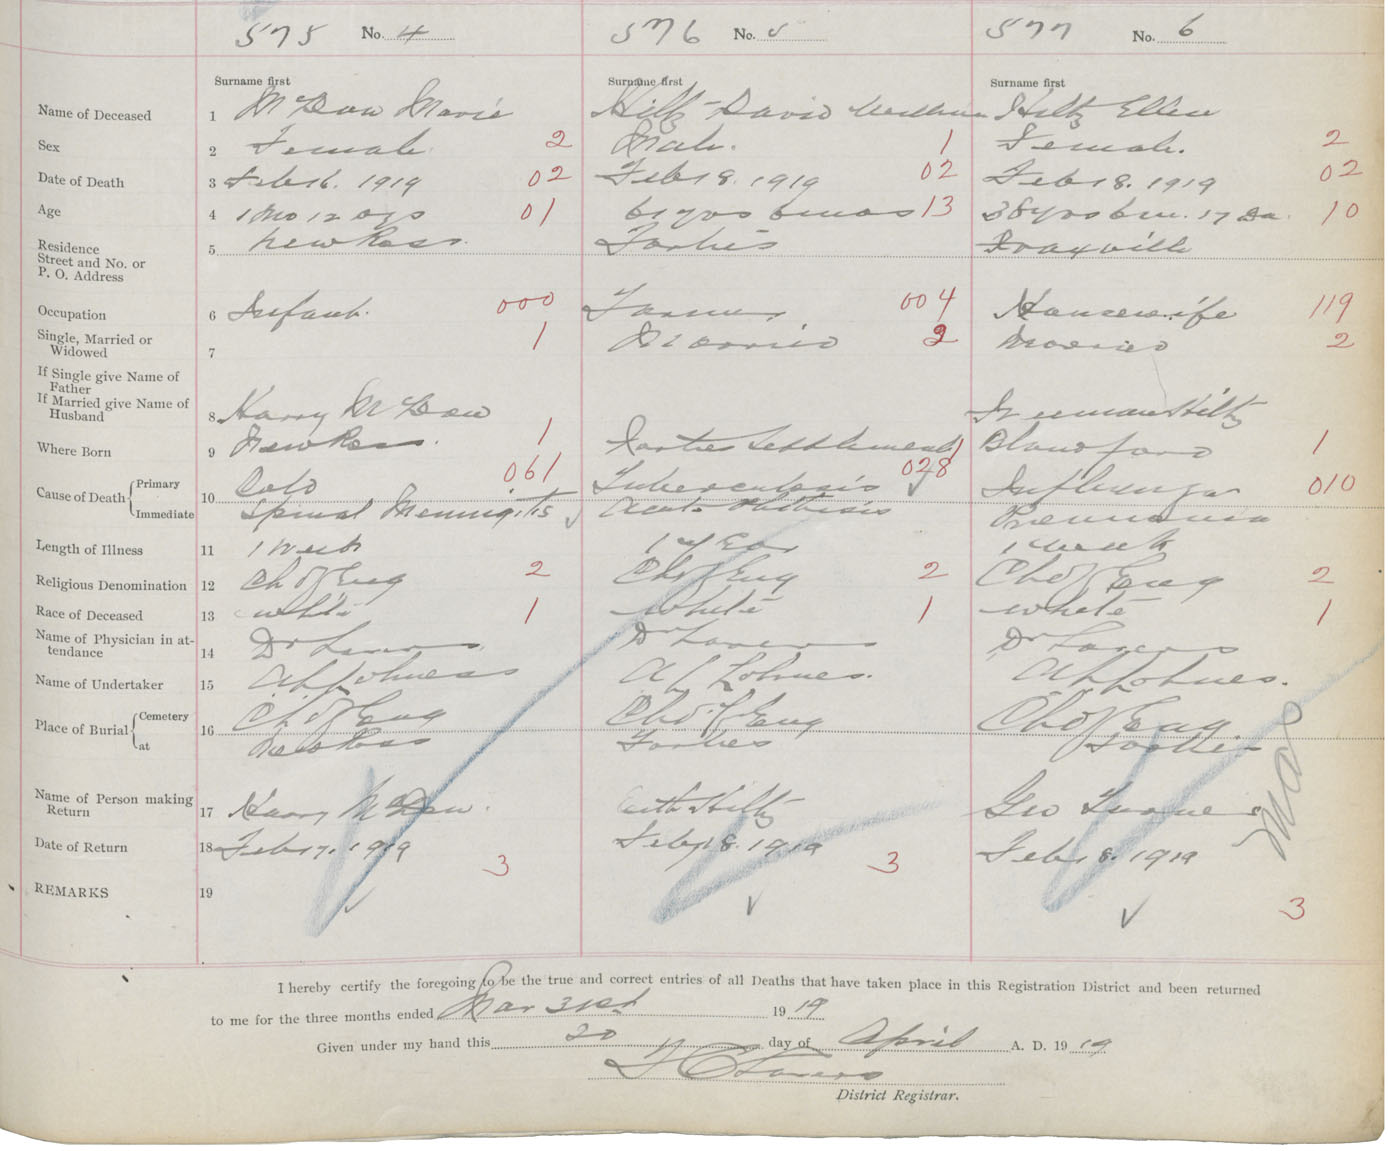 575 No. 4 576 No. 5 577 No. 6
Surname first Surname first Surname first
Name of Deceased 1 McDow Marie Hiltz David William Hiltz Ellen
Sex 2 Female 2 Male. 1 Female. 2
Date of Death 3 Feb 16. 1919 02 Feb 18. 1919 02 Feb 18. 1919 02
Age 4 1 mo 12 dys 01 61 yrs 6 mos 13 38 yrs 6 m. 17 Da. 10
Residence Street and No. or P. O. Address 5 New Ross. Forties Draxville
Occupation 6 Infant. 000 Farmer 004 Housewife 119
Single, Married or Widowed 7 1 Married 2 Married 2
If Single give Name of Father
If Married give Name of Husband 8 Harry McDow Freeman Hiltz
Where Born 9 New Ross. 1 Forties Settlement 1 Blandford 1
Cause of Death { Primary 10 Cold 061 Tuberculosis 028 Influenza 010
Immediate Spinal Menningitis Acute Phthisis Pneumonia
Length of Illness 11 1 week 1 year 1 week
Religious Denomination 12 Ch of Eng 2 Ch of Eng 2 Ch of Eng 2
Race of Deceased 13 white 1 white 1 white 1
Name of Physician in attendance 14 Dr Dr Dr
Name of Undertaker 15 Lohness Lohnes. Lohnes.
Place of Burial { Cemetery 16 Ch of Eng Ch of Eng Ch of Eng
at New Ross Forties Forties
Mar
Name of Person making Return 17 Harry McDow. Hiltz Geo Turner
Date of Return 18 Feb 17. 1919 Feb 18. 1919 Feb 18. 1919
3 3 3
REMARKS 19
I hereby certify the foregoing to be the true and correct entries of all Deaths that have taken place in this Registration District and been returned
to me for the three months ended Mar 31st 1919
Given under my hand this 20 day of April A. D. 1919
District Registrar.